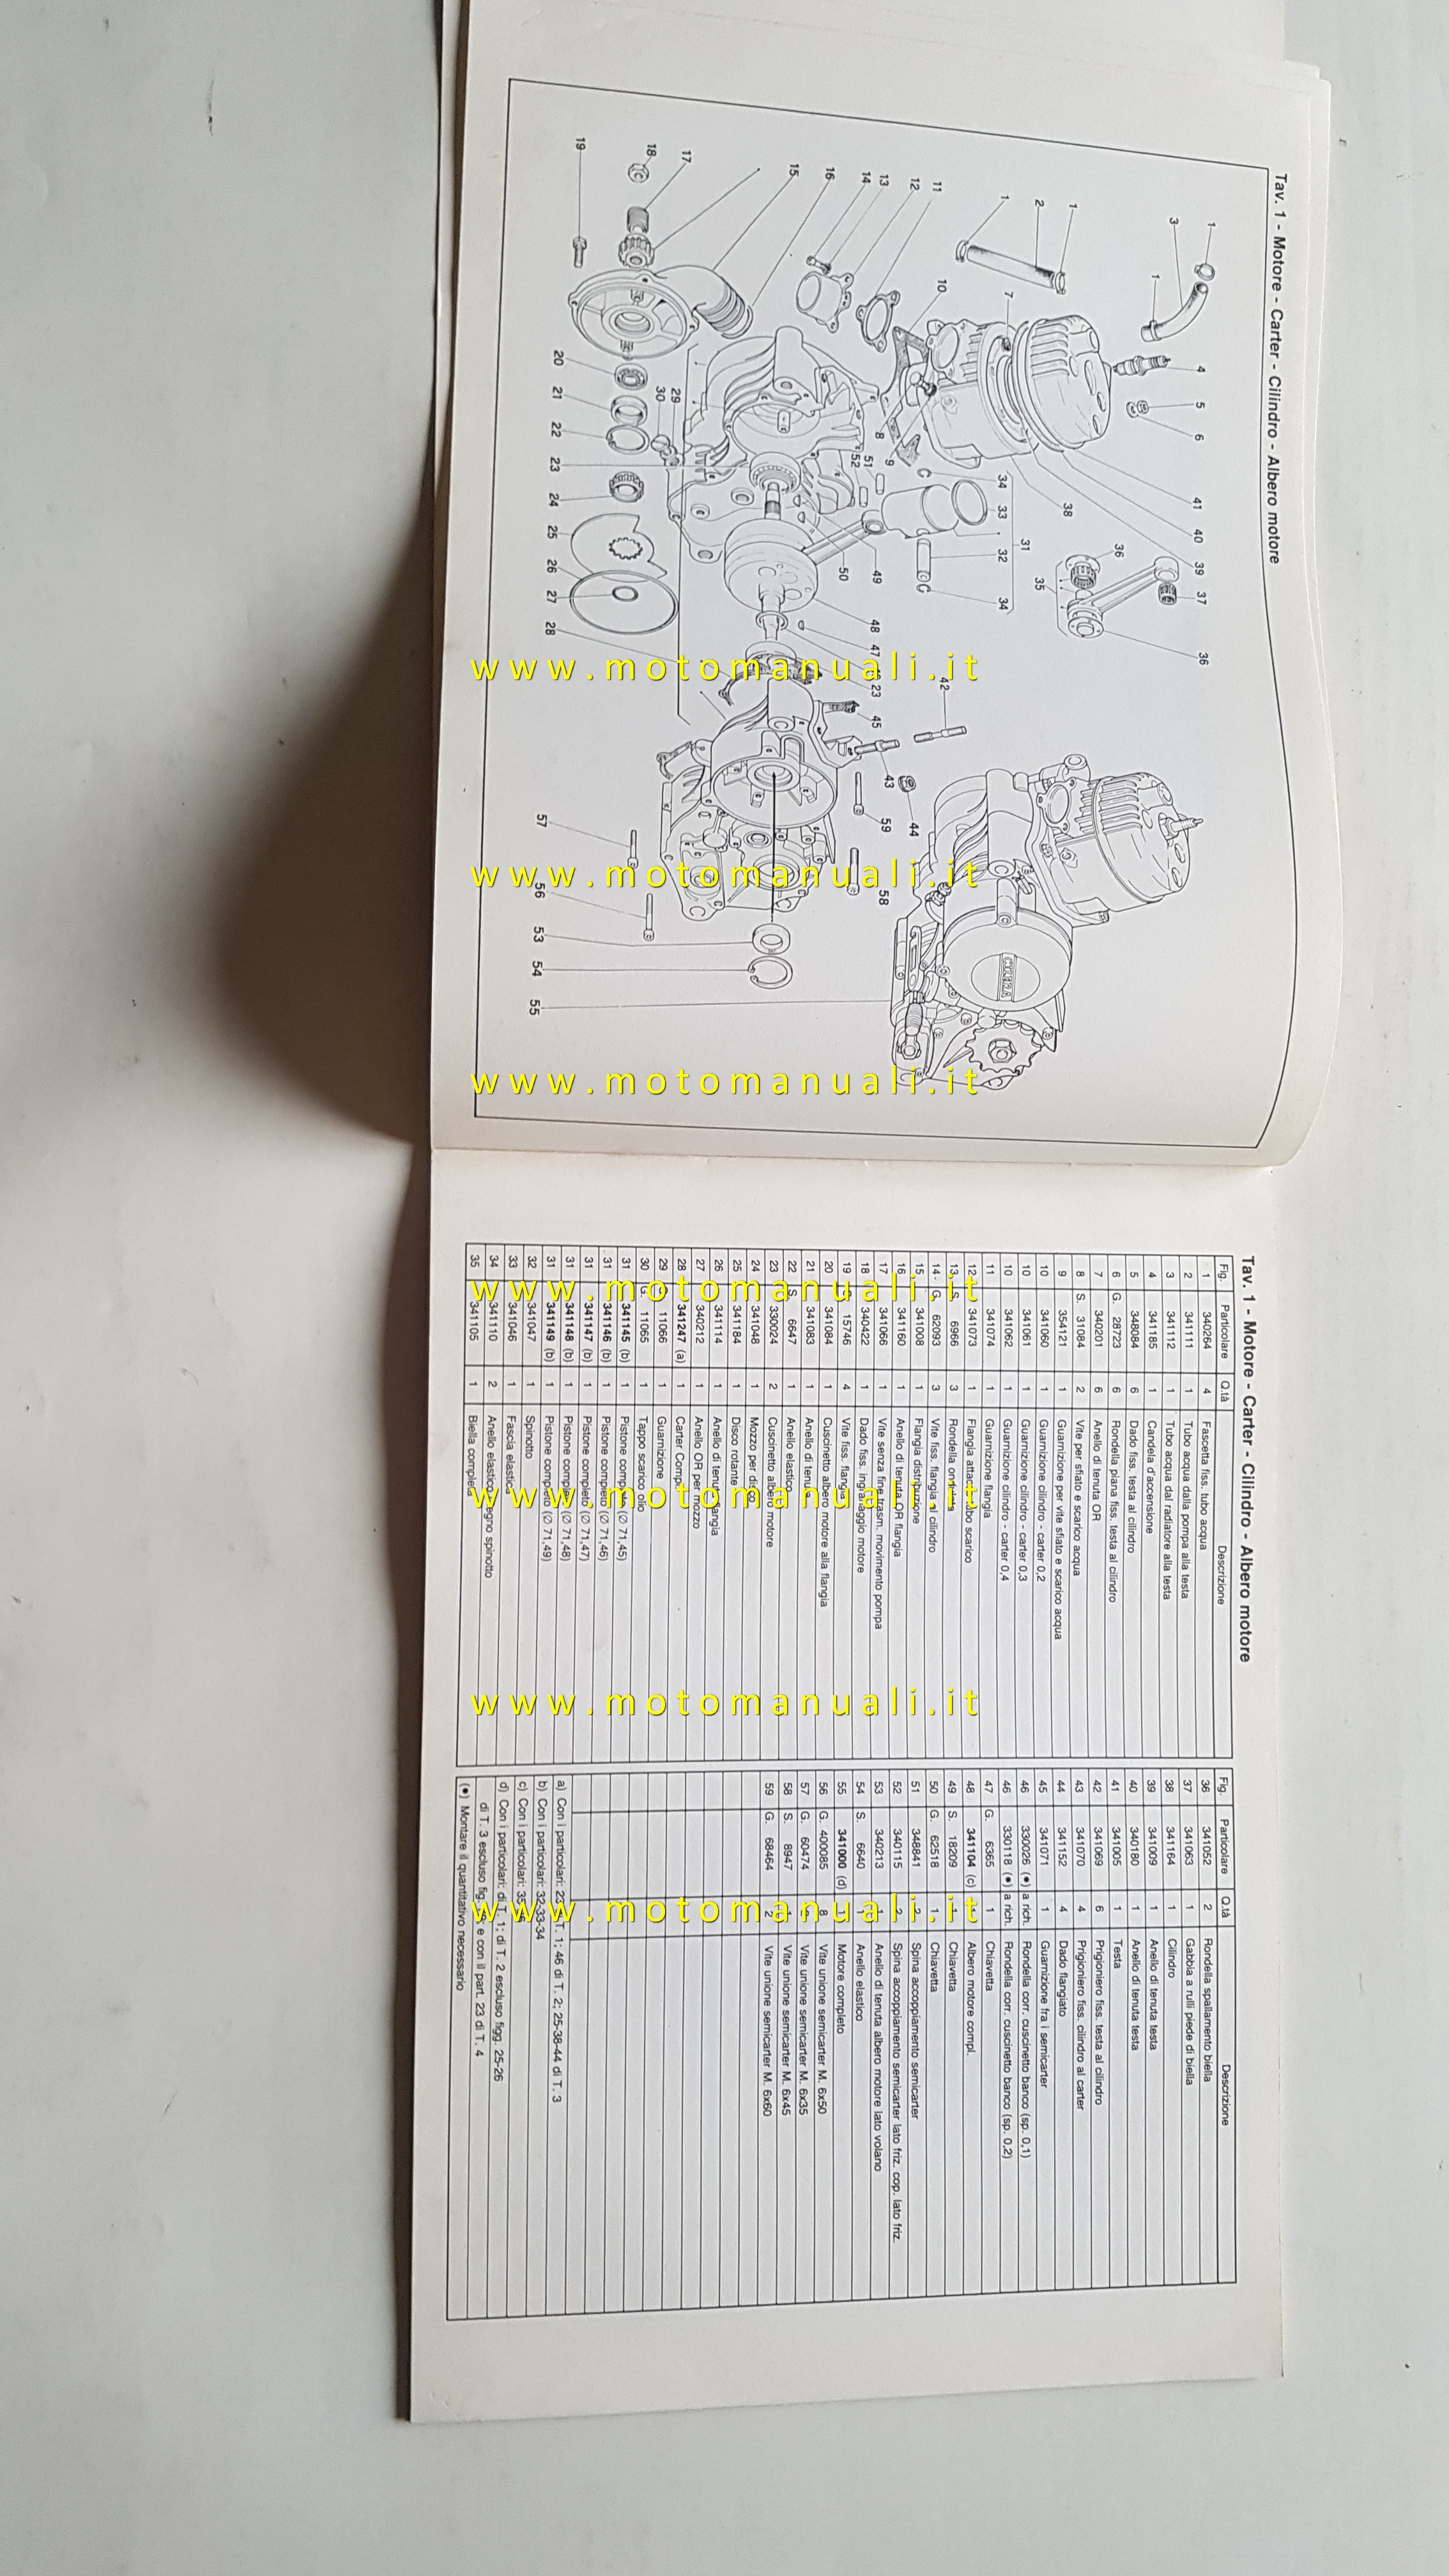 Tav. 1 - Motore - Carter - Cilindro - Albero motore
COBRA
www.motomanuali.it
www.motomanuali.it
www.motomanuali.it
Tav. 1 - Motore - Carter - Cilindro - Albero motore
Fig. Particolare Q.tà Descrizione
1 340264 4 Fascetta fiss. tubo acqua
2 341111 1 Tubo acqua dalla pompa alla testa
3 341112 1 Tubo acqua dal radiatore alla testa
4 341185 1 Candela d'accensione
5 348084 6 Dado fiss. testa al cilindro
6 G. 28723 6 Rondella piana fiss. testa al cilindro
7 340201 6 Anello di tenuta OR
8 S. 31084 2 Vite per sfiato e scarico acqua
9 354121 1 Guarnizione per vite sfiato e scarico acqua
10 341060 1 Guarnizione cilindro - carter 0,2
10 341061 1 Guarnizione cilindro - carter 0,3
10 341062 1 Guarnizione cilindro - carter 0,4
11 341074 1 Guarnizione flangia
12 341073 1 Flangia attacco tubo scarico
13 S. 6966 3 Rondella ondulata
14 G. 62093 3 Vite fiss. flangia al cilindro
15 341008 1 Flangia distribuzione
16 341160 1 Anello di tenuta OR flangia
17 341066 1 Vite senza fine trasm. movimento pompa
18 340422 1 Dado fiss. ingranaggio motore
19 15746 4 Vite fiss. flangia
20 341084 1 Cuscinetto albero motore alla flangia
21 341083 1 Anello di tenuta
22 S. 6647 1 Anello elastico
23 330024 2 Cuscinetto albero motore
24 341048 1 Mozzo per disco
25 341184 1 Disco rotante
26 341114 1 Anello di tenuta flangia
27 340212 1 Anello OR per mozzo
28 341247 (a) 1 Carter Compl.
29 11066 1 Guarnizione
30 G. 11065 1 Tappo scarico olio
31 341145 (b) 1 Pistone completo (∅ 71,45)
31 341146 (b) 1 Pistone completo (∅ 71,46)
31 341147 (b) 1 Pistone completo (∅ 71,47)
31 341148 (b) 1 Pistone completo (∅ 71,48)
31 341149 (b) 1 Pistone completo (∅ 71,49)
32 341047 1 Spinotto
33 341046 1 Fascia elastica
34 341110 2 Anello elastico segno spinotto
35 341105 1 Biella completa
Fig. Particolare Q.tà Descrizione
36 341052 2 Rondella spallamento biella
37 341063 1 Gabbia a rulli piede di biella
38 341164 1 Cilindro
39 341009 1 Anello di tenuta testa
40 340180 1 Anello di tenuta testa
41 341005 1 Testa
42 341069 6 Prigioniero fiss. testa al cilindro
43 341070 4 Prigioniero fiss. cilindro al carter
44 341152 4 Dado flangiato
45 341071 1 Guarnizione fra i semicarter
46 330026 (●) a rich. Rondella corr. cuscinetto banco (sp. 0,1)
46 330118 (●) a rich. Rondella corr. cuscinetto banco (sp. 0,2)
47 G. 6365 1 Chiavetta
48 341104 (c) 1 Albero motore compl.
49 S. 18209 1 Chiavetta
50 G. 62518 1 Chiavetta
51 348841 2 Spina accoppiamento semicarter
52 340115 2 Spina accoppiamento semicarter lato friz. cop. lato friz.
53 340213 1 Anello di tenuta albero motore lato volano
54 S. 6640 1 Anello elastico
55 341000 (d) 1 Motore completo
56 G. 400085 8 Vite unione semicarter M. 6x50
57 G. 60474 Vite unione semicarter M. 6x35
58 S. 8947 Vite unione semicarter M. 6x45
59 G. 68464 2 Vite unione semicarter M. 6x60
a) Con i particolari: 23 di T. 1; 46 di T. 2; 25-38-44 di T. 3
b) Con i particolari: 32-33-34
c) Con i particolari: 35
d) Con i particolari: di T. 1; di T. 2 escluso figg. 25-26
di T. 3 escluso fig. e con il part. 23 di T. 4
(●) Montare il quantitativo necessario
www.motomanuali.it
www.motomanuali.it
www.motomanuali.it
www.motomanuali.it